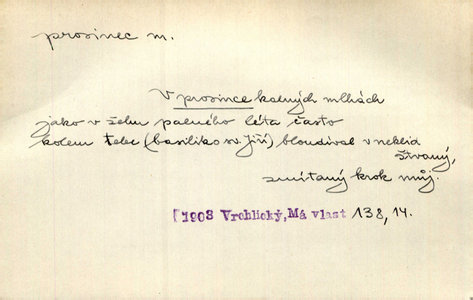 prosinec m.
V prosince kalných mlhách
jako v žehu palného léta často
kolem tebe (basiliko sv. Jiří) bloudíval v neklid
štvaný,
zmítaný krok můj.
[1903 Vrchlický, Má vlast 138, 14.